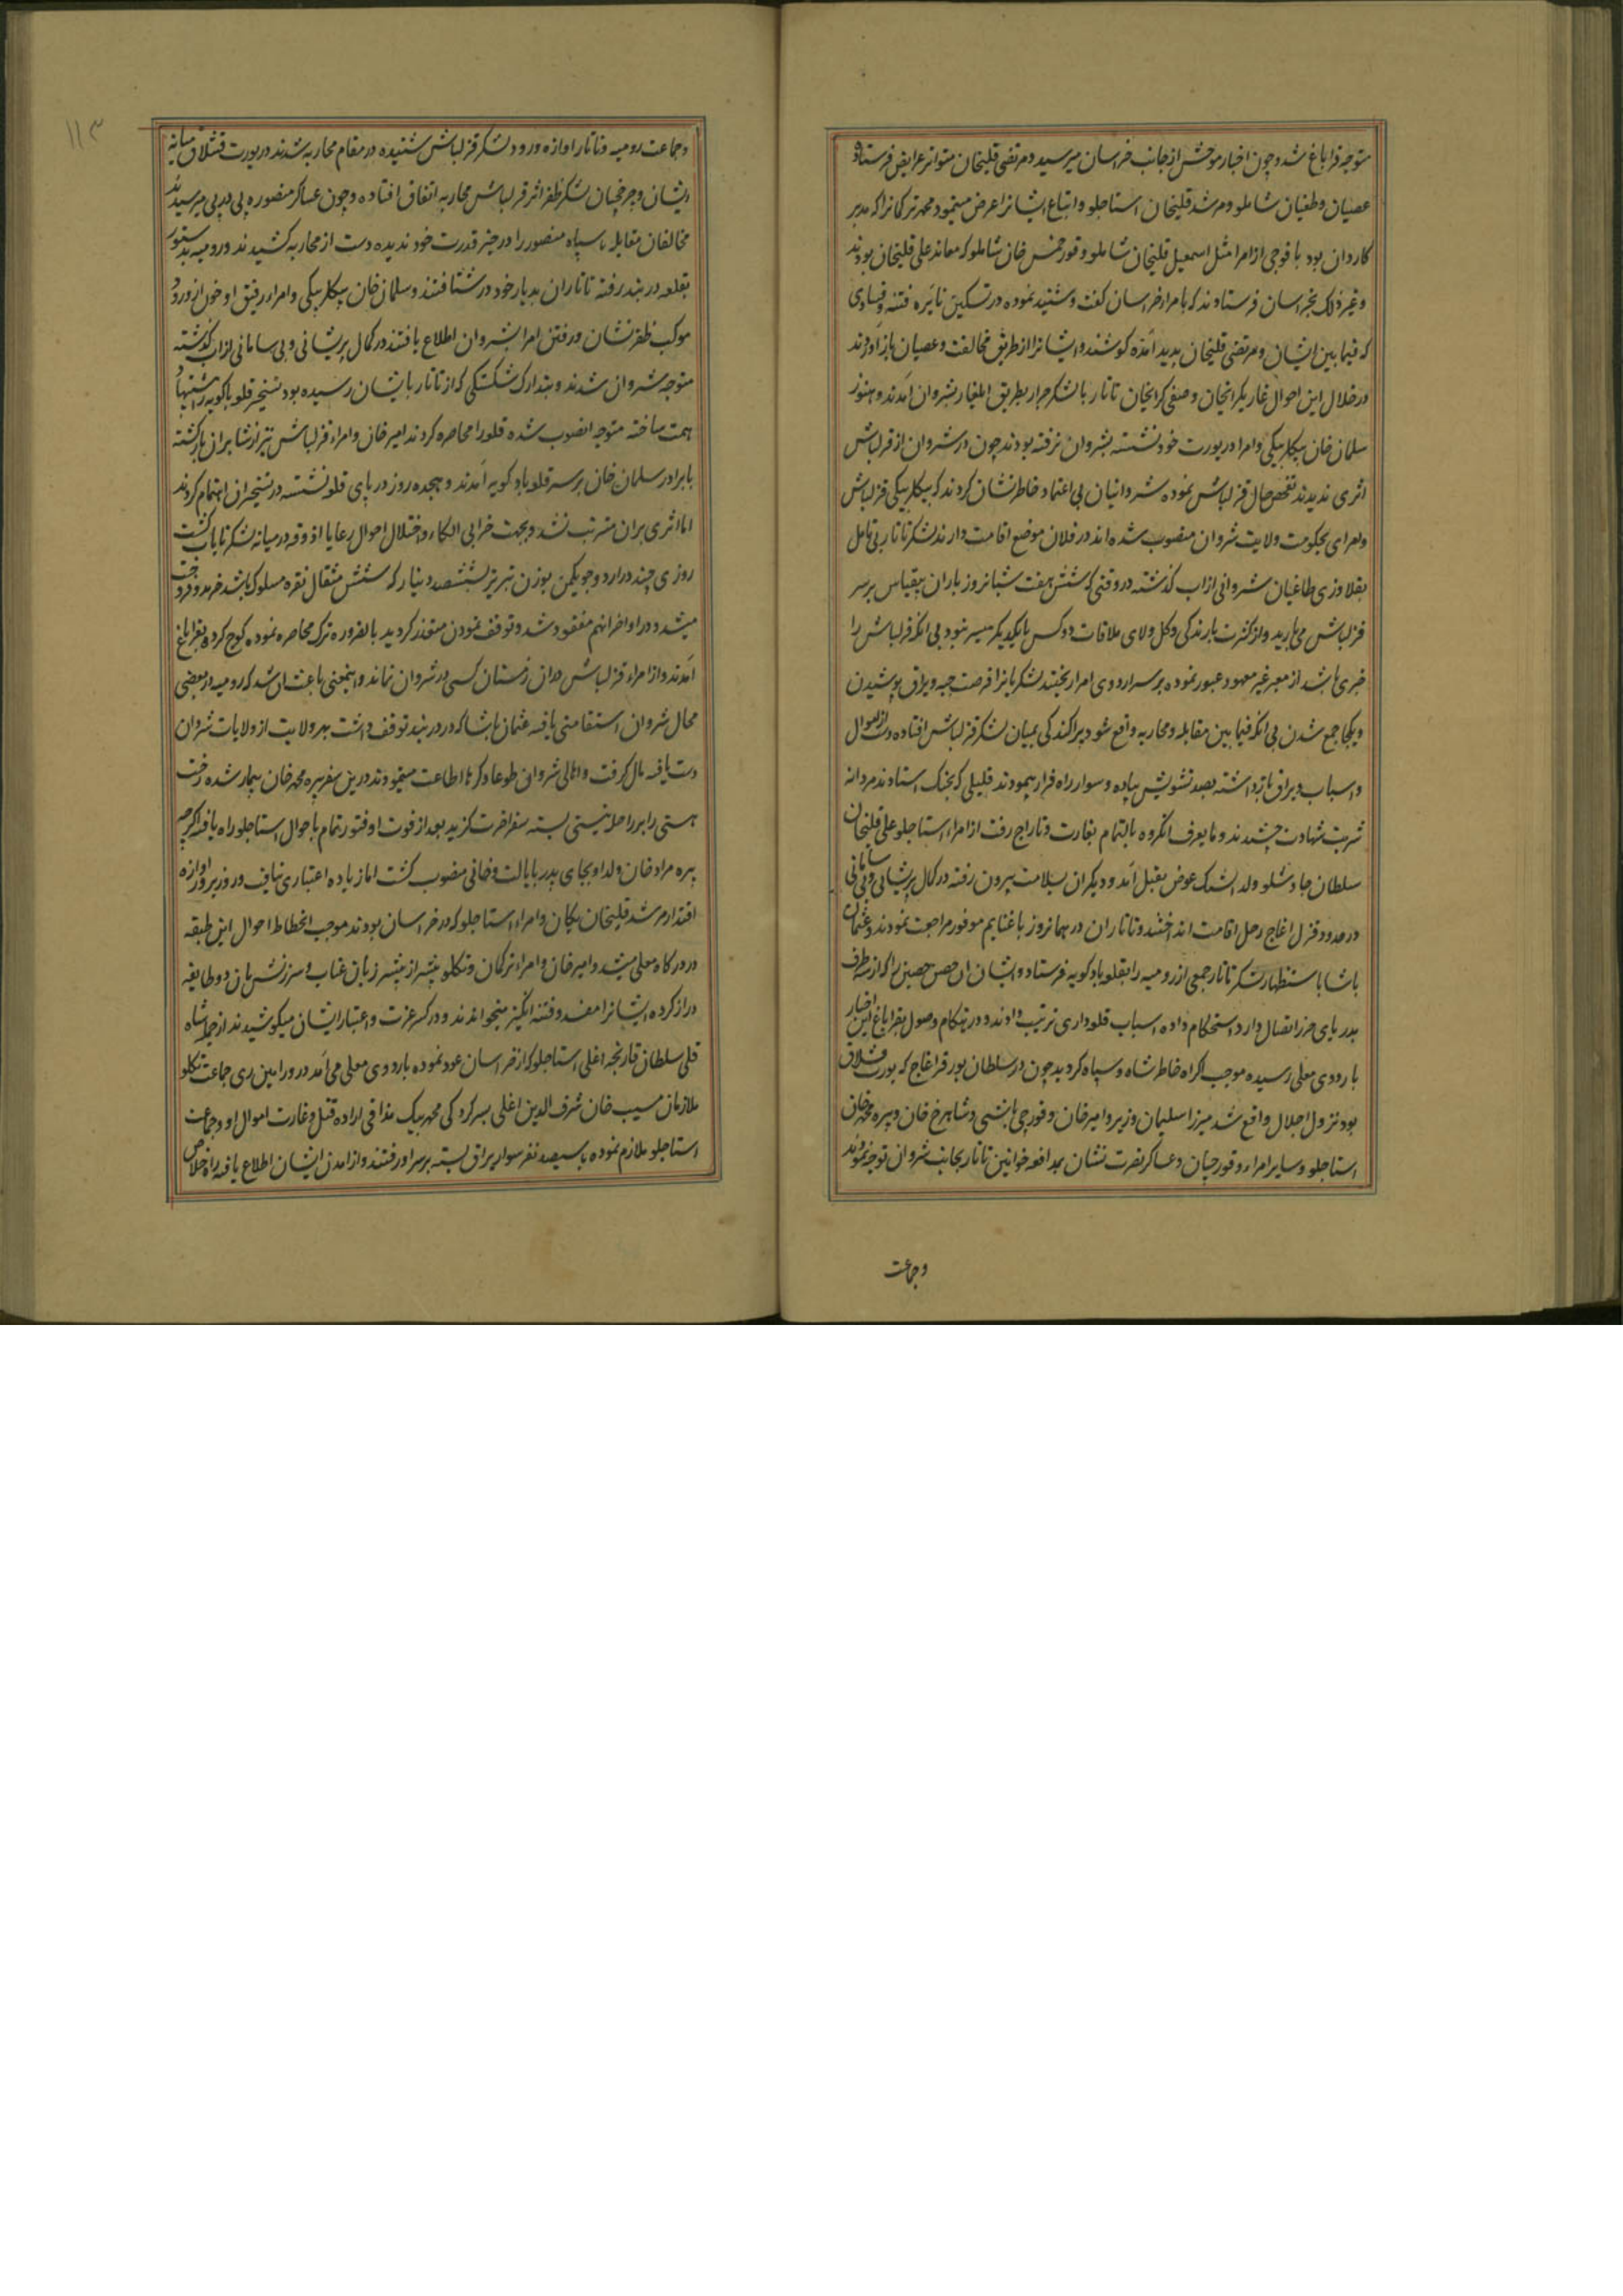 متوجه قراباغ شد و چون اخبار موحش از جانب خراسان میرسید و مرتضی قلیخان متواتر عرایض فرستاده
عصیان و طغیان شاملو و مرشد قلیخان استاجلو و اتباع ایشانرا عرض مینمود محمد ترکمانرا که مدبر
کاردان بود با فوجی از امرا مثل اسمعیل قلیخان شاملو و قورخمس خان شاملو که معاند علی قلیخان بودند
و غیر ذلک بخراسان فرستادند که با مراء خراسان گفت و شنید نموده در تسکین نایره فتنه و فسادی
که فیما بین ایشان و مرتضی قلیخان پدید آمده کوشند و ایشانرا از طریق مخالفت و عصیان باز آورند
در خلال این احوال غازیکرایخان و صفی کرایخان تاتار با لشکر جرار بطریق ایلغار بشروان آمدند و هنوز
سلمان خان بیکلربیکی و امرا در یورت خود نشسته بشروان نرفته بودند چون در شروان از قزلباش
اثری ندیدند تفحص حال قزلباش نموده شروانیان بی اعتماد خاطرنشان کردند که بیکلربیکی قزلباش
و امرای بحکومت ولایت شروان منصوب شده اند در فلان موضع اقامت دارند لشکر تاتار بی تامل
بقلاوزی طاغیان شروانی از اب گذشته در وقتی که شش هفت شبانروز باران بیقیاس بر سر
قزلباش می بارید و از کثرت بارندگی و گل و لای ملاقات دو کس با یکدیگر میسر نبود بی انکه قزلباش را
خبری باشد از معبر غیر معهود عبور نموده بر سر اردوی امرا ریختند لشکریانرا فرصت جبه و یراق پوشیدن
و یکجا جمع شدن بی انکه فیما بین مقابله و محاربه واقع شود پراکندگی بمیان لشکر قزلباش افتاده دست از اموال
و اسباب و یراق بازداشته بصد تشویش پیاده و سوار راه فرار پیمودند قلیلی که بجنک استادند مردانه
شربت شهادت چشیدند و ما یعرف انگروه بالتمام بغارت و تاراج رفت از امراء استاجلو علی قلیخان
سلطان چاوشلو ولد اشک عوض بقتل آمد و دیگران بسلامت بیرون رفته در کمال پریشانی و بی سامانی
در حدود قزل اغاج رحل اقامت انداختند و تاتاران در همانروز با غنایم موفور مراجعت نمودند و عثمان
پاشا باستظهار لشکر تاتار جمعی از رومیه را بقلعه بادکوبه فرستاد و ایشان ان حصن حصین را که از سه طرف
بدریای خزر اتصال دارد استحکام داده اسباب قلعه داری ترتیب دادند و در هنگام وصول بقراباغ این اخبار
باردوی معلی رسیده موجب اکراه خاطر شاه و سپاه گردید چون در سلطان بود قراغاج که یورت قشلاق
بود نزول اجلال واقع شد میرزا سلیمان وزیر و امیر خان و قورچی باشی و شاهرخ خان و پیره محمد خان
استاجلو و سایر امراء و قورچیان و عساکر نصرت نشان بمدافعه خوانین تاتار بجانب شروان توجه نمودند
وجماعت
۱۱۳
وجماعت رومیه و تاتار اوازه ورود لشکر قزلباش شنیده در مقام محاربه شدند در یورت قشلاق میانه
ایشان و چرخچیان لشکر ظفر اثر قزلباش محاربه اتفاق افتاده و چون عساکر منصوره پی در پی میرسیدند
مخالفان مقابله با سپاه منصور را در حیز قدرت خود ندیده دست از محاربه کشیدند و رومیه بدستور
بقلعه دربند رفته تاتاران بدیار خود در شتافتند و سلمان خان بیکلربیکی و امراء رفیق او چون از ورود
موکب ظفر نشان و رفتن امرا بشروان اطلاع یافتند در کمال پریشانی و بی سامانی از اب گذشته
متوجه شروان شدند و بتدارک شکستگی که از تاتار بایشان رسیده بود تسخیر قلعه باکویه را پیشنهاد
همت ساخته متوجه انصوب شده قلعه را محاصره کردند امیر خان و امراء قزلباش نیز از شابران بازگشته
با برادر سلمان خان بر سر قلعه بادکوبه آمدند و هجده روز در پای قلعه نشسته در تسخیر ان اهتمام کردند
اما اثری بران مترتب نشد و بجهت خرابی الکاء و اختلال احوال رعایا اذوقه در میانه لشکر نایاب گشت
روزی چند در ارد و جو یکمن بوزن تبریز بششصد دینار که شش مثقال نقره مسلوک باشد خرید و فروخت
میشد و در اواخر انهم مفقود شد و توقف نمودن متعذر گردید بالضروره ترک محاصره نموده کوچ کرده بقراباغ
آمدند و از امراء قزلباش دران زمستان کسی در شروان نماند و اینمعنی باعث ان شد که رومیه در بعضی
محال شروان استقامتی یافته عثمان پاشا که در دربند توقف داشت بهر ولایت از ولایات شروان
دست یافته مال گرفت و اهالی شروان طوعا و کرها اطاعت مینمودند درین سفر پیره محمد خان بیمار شده رخت
هستی را بر راحله نیستی بسته سفر اخرت گزید بعد از فوت او فتور تمام باحوال استاجلو راه یافت اگرچه
پیره مراد خان ولد او بجای پدر بایالت و خانی منصوب گشت اما زیاده اعتباری نیافت و روز بروز اوازه
اقتدار مرشد قلیخان یکان و امراء استاجلو که در خراسان بودند موجب انحطاط احوال این طبقه
در درگاه معلی میشد و امیر خان و امراء ترکمان و تکلو بیشتر از پیشتر زبان عتاب و سرزنش بان دو طایفه
دراز کرده ایشانرا مفسد و فتنه انگیز میخواندند و در کسر عزت و اعتبار ایشان میکوشیدند از جمله شاه
قلی سلطان قارنجه اغلی استاجلو که از خراسان عود نموده باردوی معلی می آمد در ورامین ری جماعت تکلو
ملازمان مسیب خان شرف الدین اغلی بسرکردگی محمد بیک مذاقی اراده قتل و غارت اموال او و جماعت
استاجلو ملازم نموده با سیصد نفر سوار یراق بسته بر سر او رفتند و از امدن ایشان اطلاع یافته راه خلاص